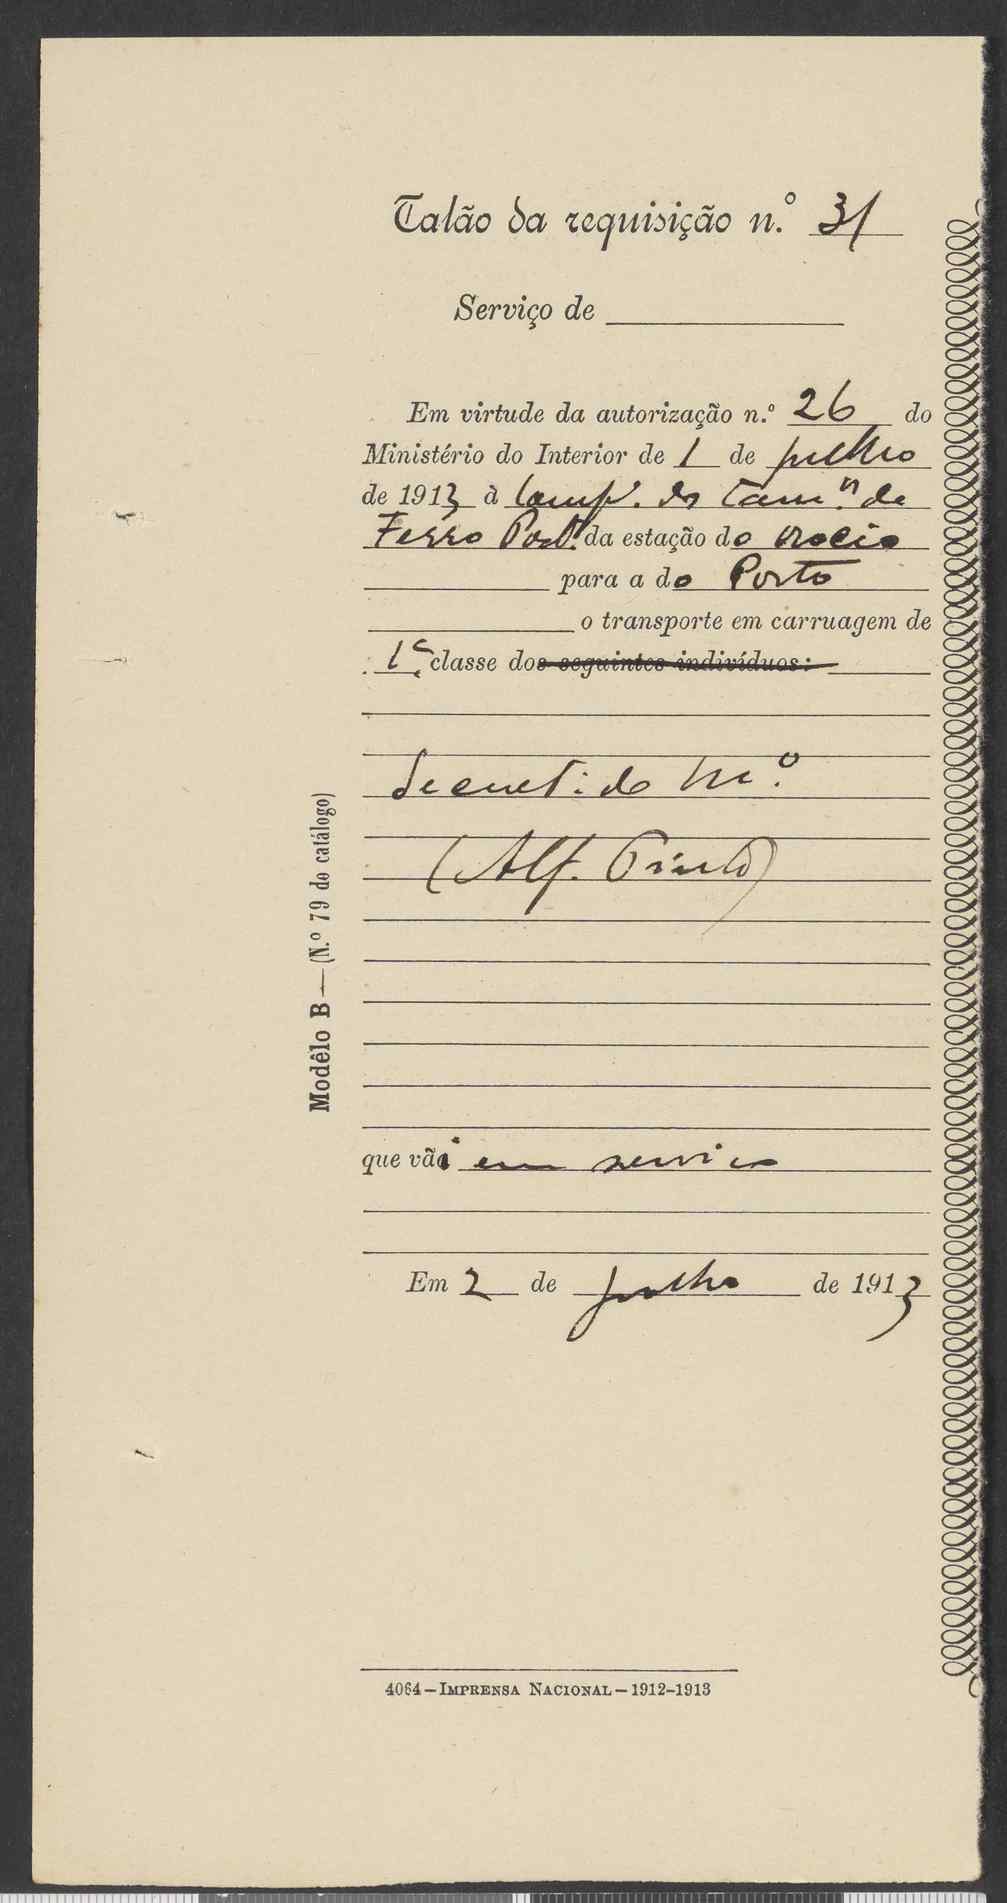 Talão da requisição n.º 31
Serviço de
Em virtude da autorização n.º 26 do
Ministério do Interior de 1 de julho
de 1913 à Comp.ª dos Cam.os de
Ferro Port. da estação do Rocio
para a do Porto
o transporte em carruagem de
1ª classe dos seguintes indivíduos:
Secret. do M.º
(Alf. Pinto)
que vai em serviço
Em 2 de julho de 1913
Modêlo B—(N.º 79 do catálogo)
4064—IMPRENSA NACIONAL—1912-1913